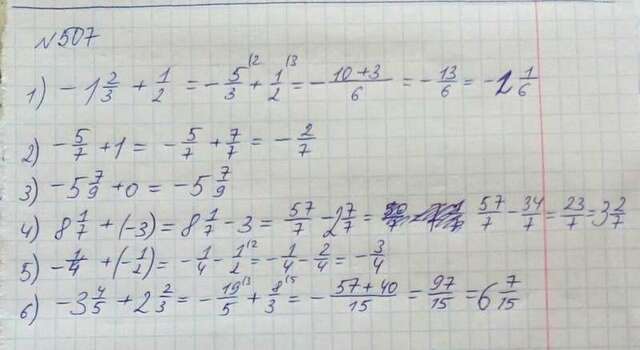 №507
1) -1 2/3 + 1/2 = -5/3^(2 + 1/2^(3 = -(10+3)/6 = -13/6 = -2 1/6
2) -5/7 + 1 = -5/7 + 7/7 = -2/7
3) -5 7/9 + 0 = -5 7/9
4) 8 1/7 + (-3) = 8 1/7 - 3 = 57/7 - 2 7/7 = 57/7 - 34/7 = 23/7 = 3 2/7
5) -1/4 + (-1/2) = -1/4 - 1/2^(2 = -1/4 - 2/4 = -3/4
6) -3 4/5 + 2 2/3 = -19/5^(3 + 8/3^(5 = -(57+40)/15 = 97/15 = 6 7/15